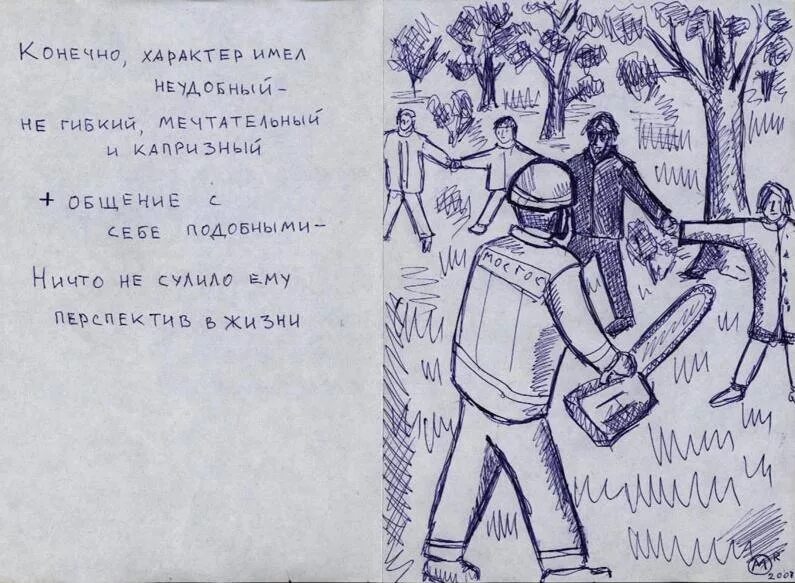 Конечно, характер имел
неудобный –
не гибкий, мечтательный
и капризный
+ общение с
себе подобными –
Ничто не сулило ему
перспектив в жизни
МОСГОС
M R
2008